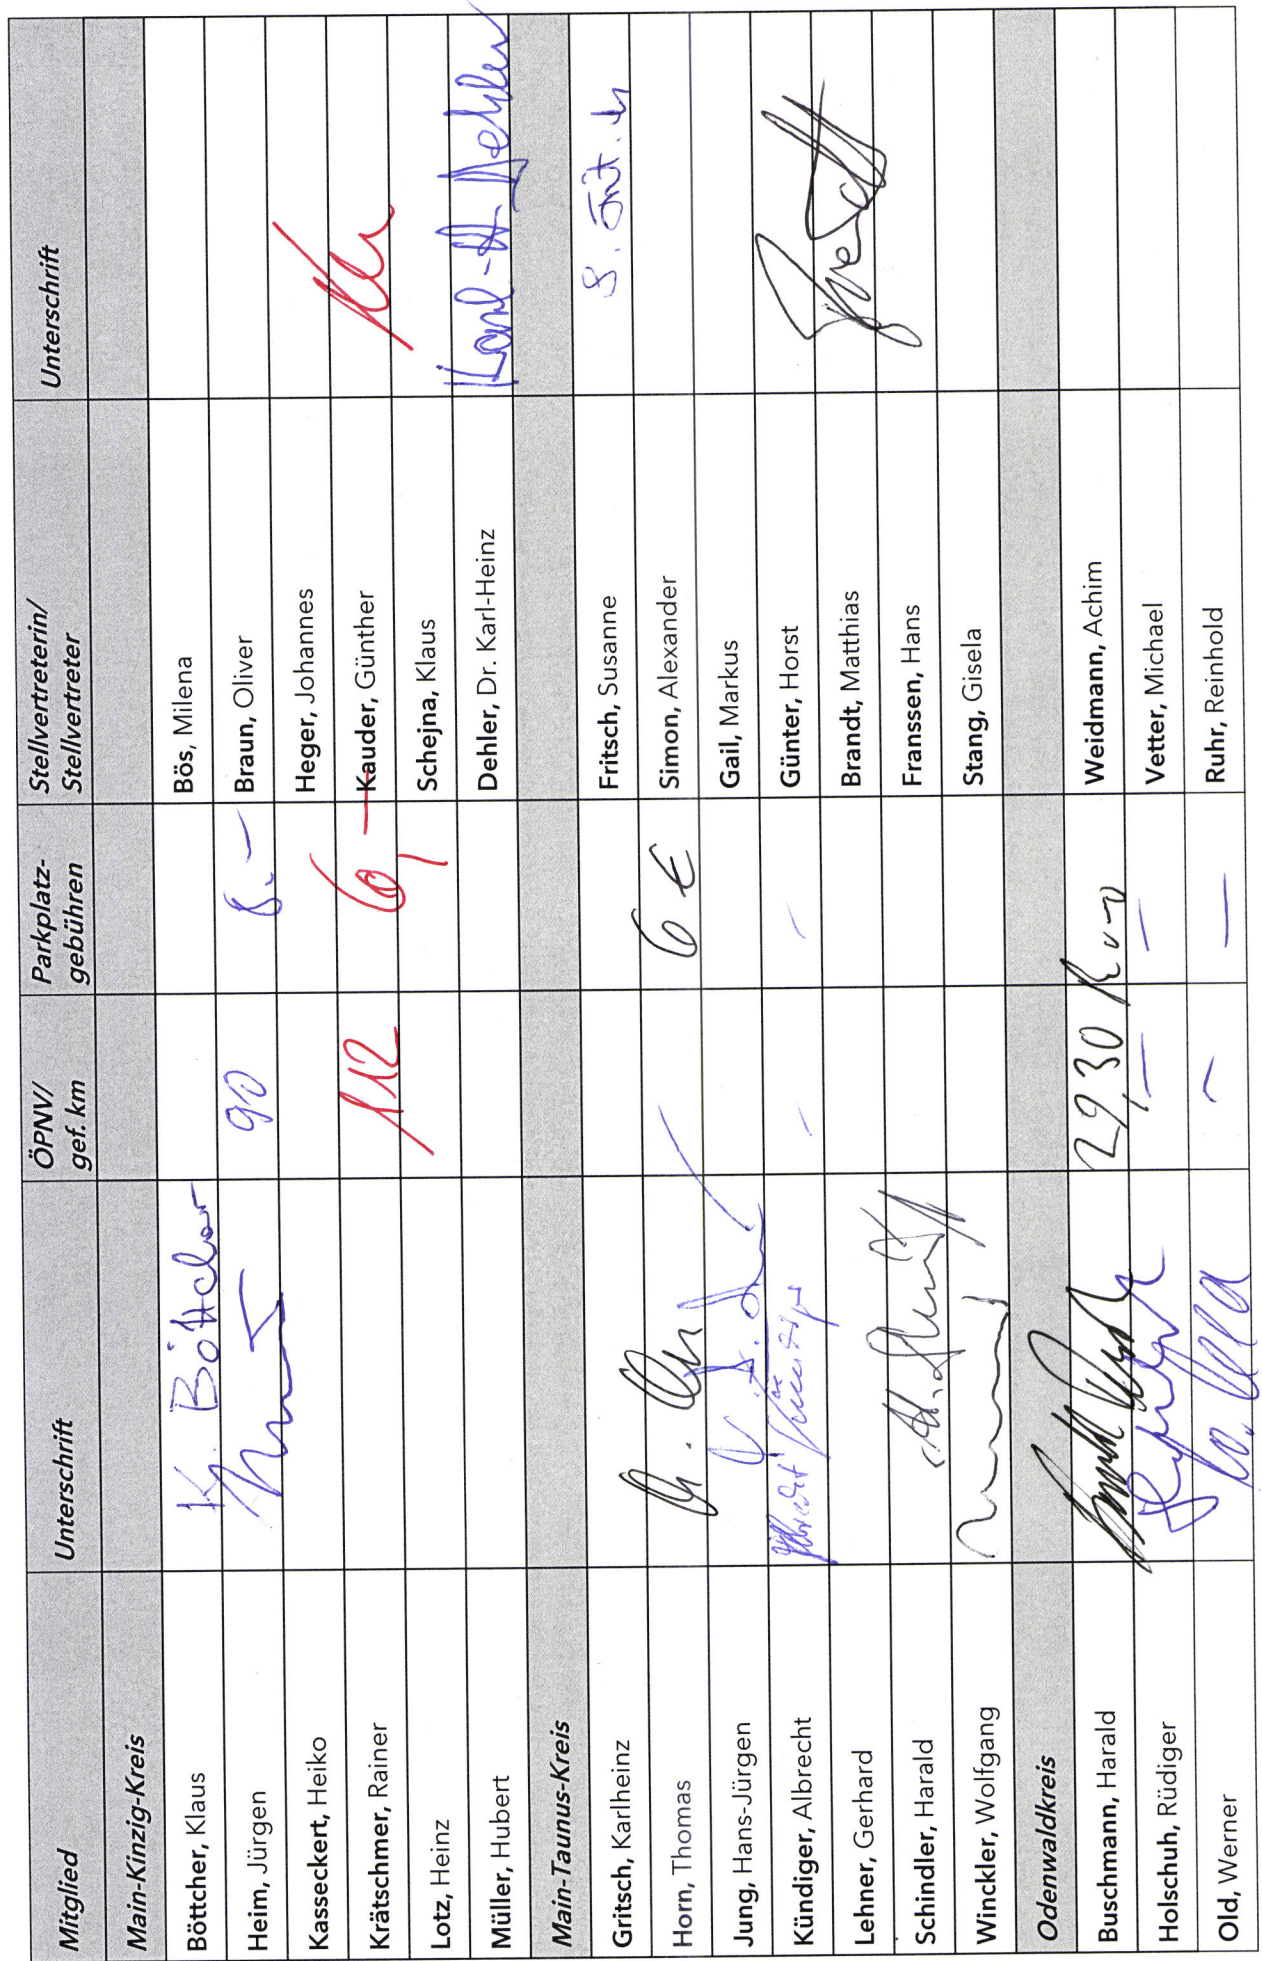 Mitglied Unterschrift ÖPNV/ gef. km Parkplatz- gebühren Stellvertreterin/ Stellvertreter Unterschrift
Main-Kinzig-Kreis
Böttcher, Klaus K. Böttcher Bös, Milena
Heim, Jürgen 90 8.- Braun, Oliver
Kasseckert, Heiko Heger, Johannes
Krätschmer, Rainer 112 6,- Kauder, Günther
Lotz, Heinz Schejna, Klaus
Müller, Hubert Dehler, Dr. Karl-Heinz Karl-H Dehler
Main-Taunus-Kreis
Gritsch, Karlheinz Fritsch, Susanne
Horn, Thomas 6 € Simon, Alexander
Jung, Hans-Jürgen Gail, Markus
Kündiger, Albrecht Albrecht Kündiger - - Günter, Horst
Lehner, Gerhard Brandt, Matthias
Schindler, Harald Franssen, Hans
Winckler, Wolfgang Stang, Gisela
Odenwaldkreis
Buschmann, Harald 29,30 Weidmann, Achim
Holschuh, Rüdiger - - Vetter, Michael
Old, Werner - - Ruhr, Reinhold